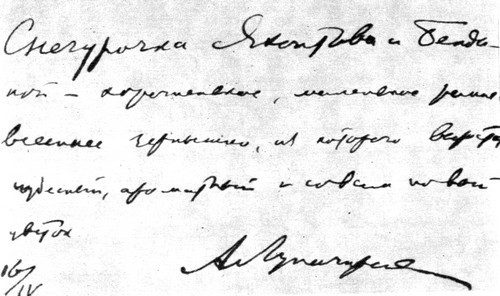 Снегурочка Яхонтова и Бенди
ной – коротенькое, маленькое
весеннее зернышко, из которого вырастет
чудесный, ароматный и совсем новый
цветок
16/IV А Луначарский